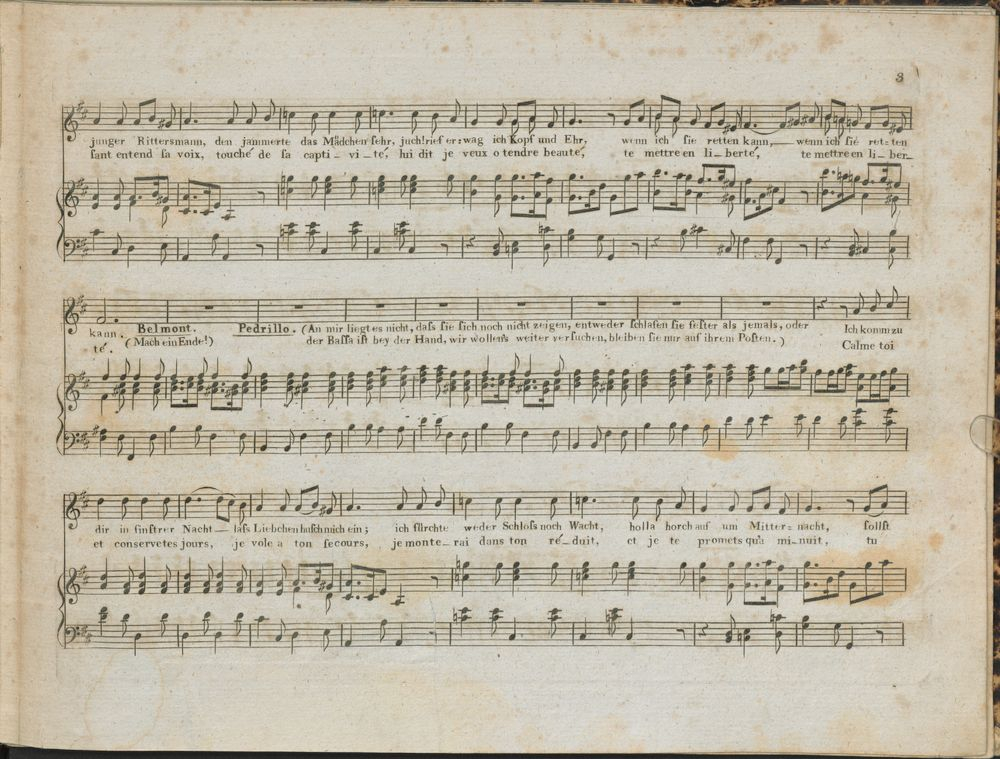 3
junger Rittersmann, den jammerte das Mädchen sehr, juch! rief er: wag ich Kopf und Ehr, wenn ich sie retten kann, — wenn ich sie ret=ten
sant entend sa voix, touché de sa capti_vi_té, lui dit je veux o tendre beauté, te mettre en li_berté, te mettre en li_ber_
kann. Belmont. Pedrillo. (An mir liegt es nicht, dass sie sich noch nicht zeigen, entweder schlafen sie fester als jemals, oder Ich komm zu
té. (Mach ein Ende!) der Bassa ist bey der Hand, wir wollen's weiter versuchen, bleiben sie nur auf ihrem Posten.) Calme toi
dir in finstrer Nacht — lass Liebchen husch mich ein; ich fürchte weder Schloss noch Wacht, holla horch auf um Mitter=nacht, sollst
et conserve tes jours, je vole a ton secours, je monte_rai dans ton ré_duit, et je te promets qu'a mi_nuit, tu